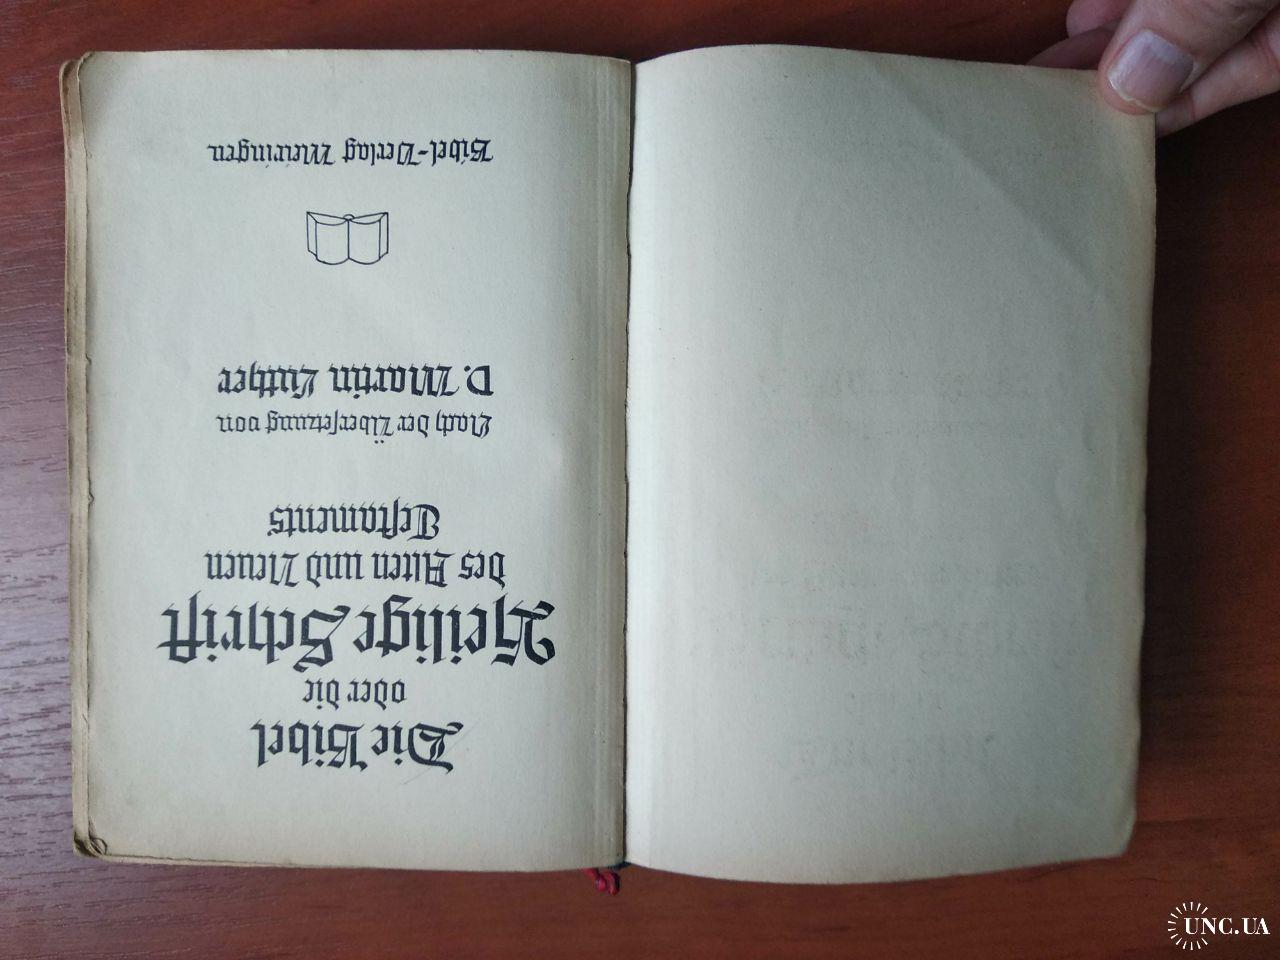 Die Bibel
oder die
Heilige Schrift
des Alten und Neuen
Testaments
Nach der Übersetzung von
D. Martin Luther
Bibel-Verlag Meiringen
UNC.UA